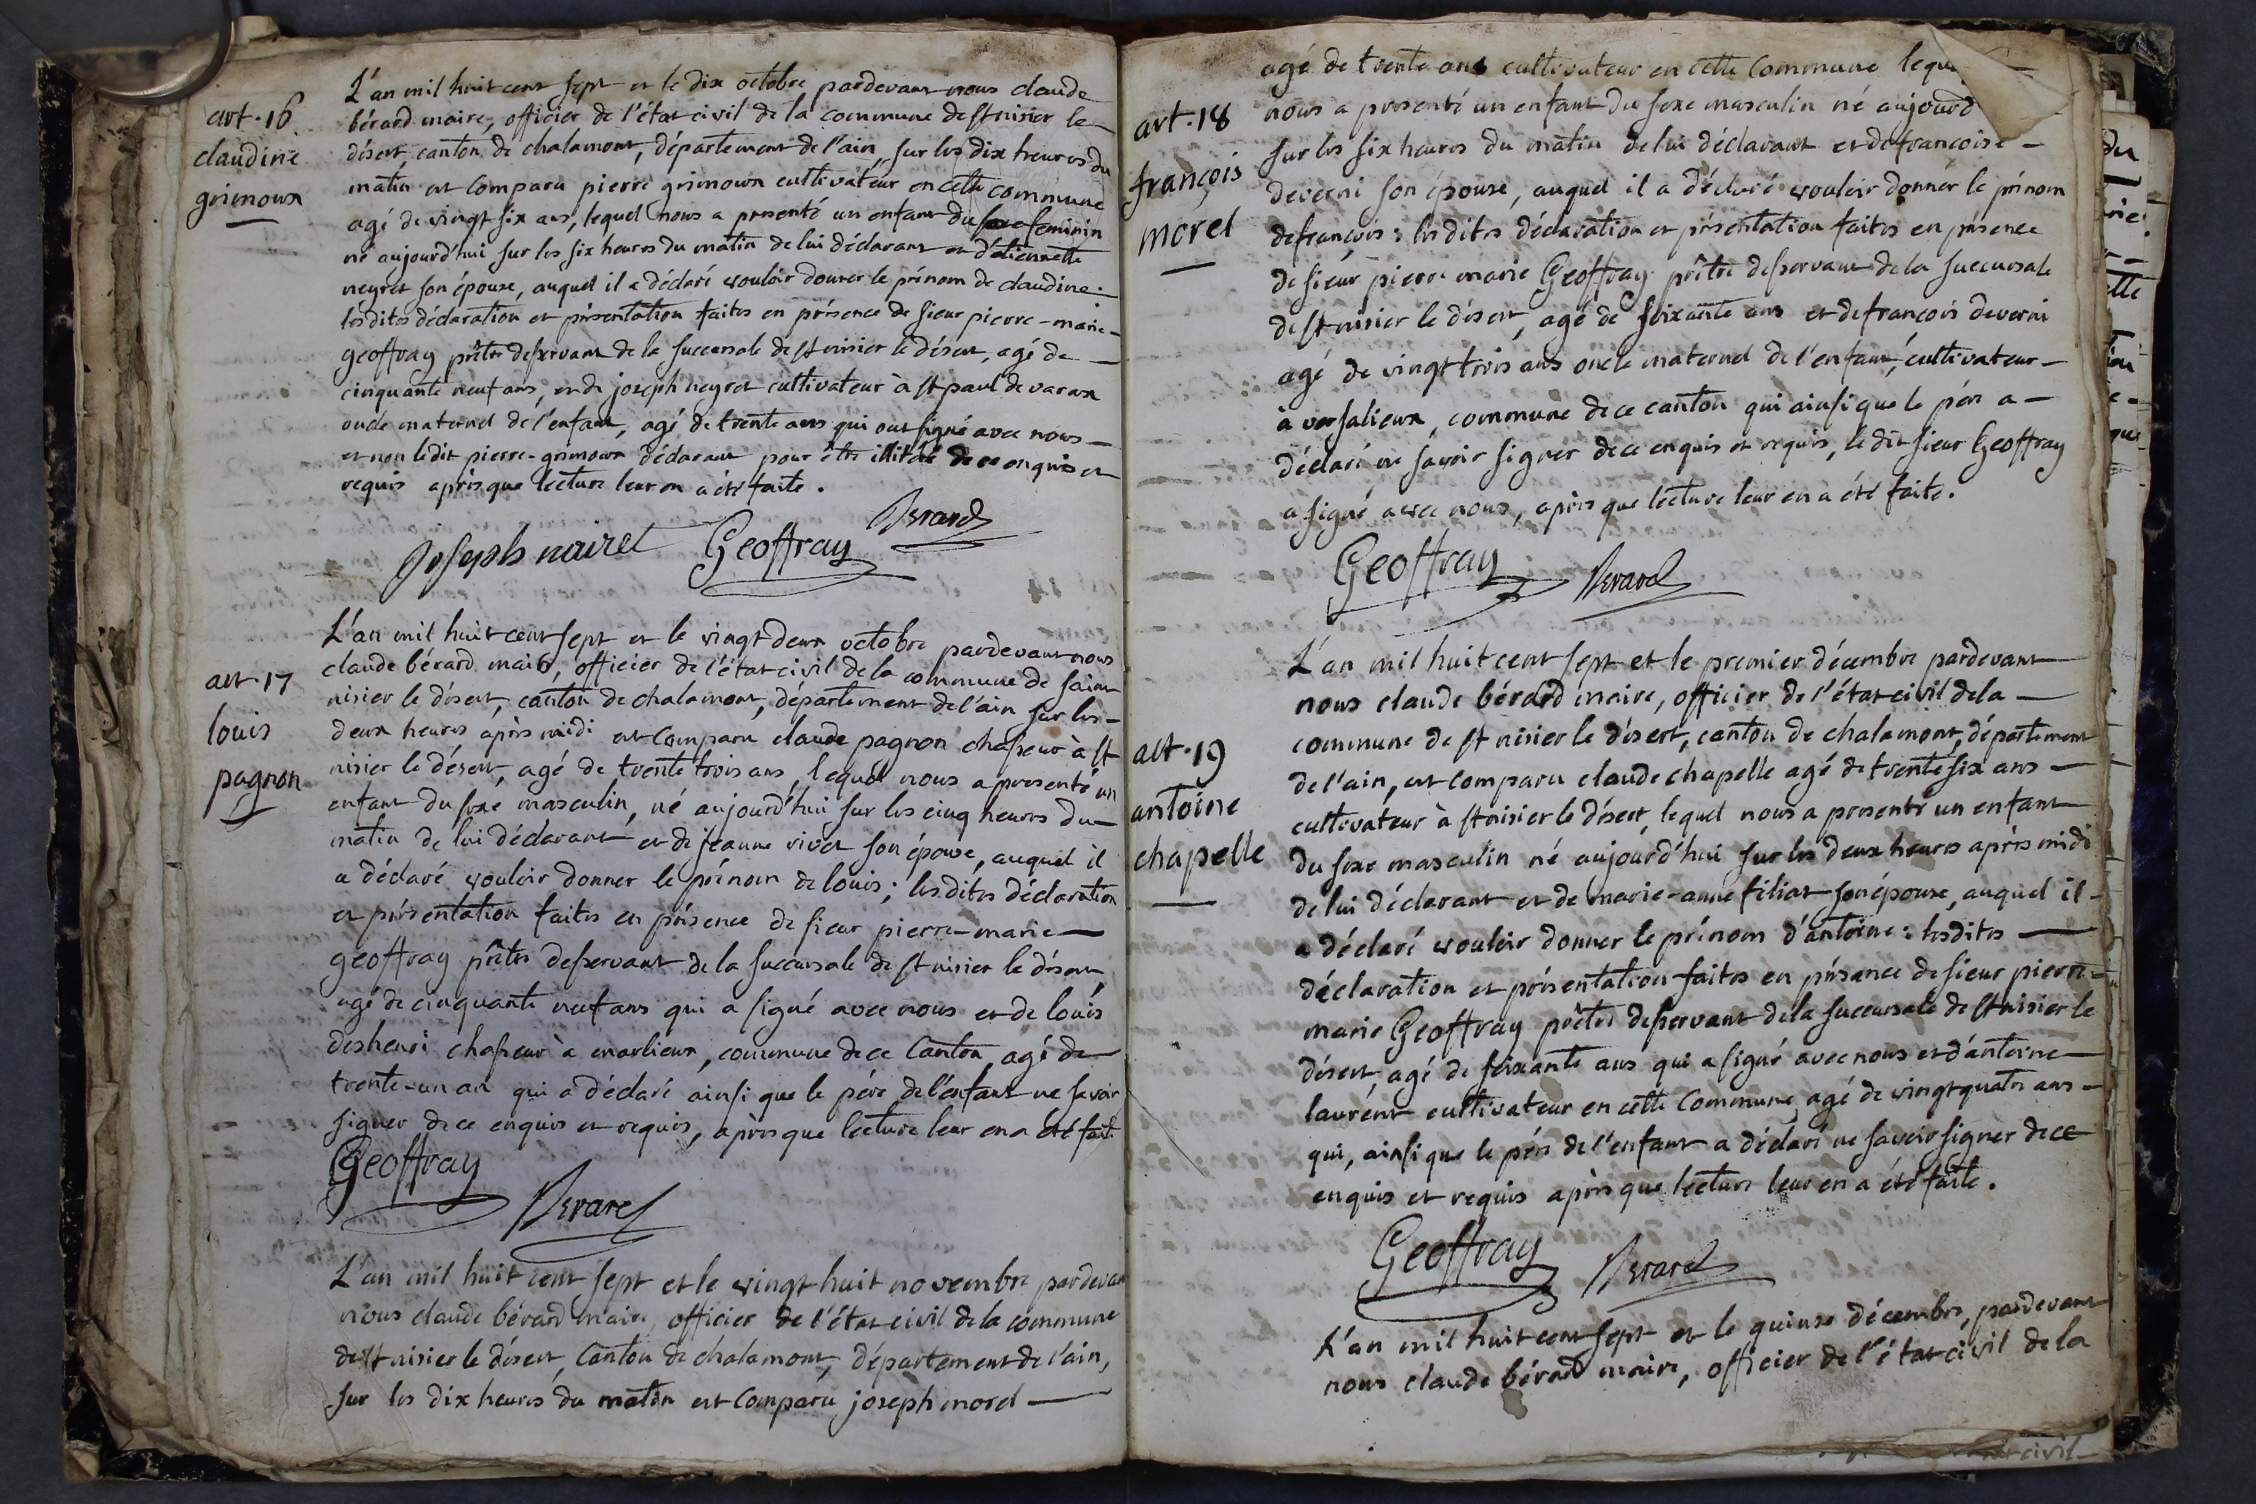 art. 16
claudine
grimoux
L'an mil huit cent sept et le dix octobre pardevant nous claude
bérard maire, officier de l'état civil de la commune de st nisier le
désert, canton de chalamont, département de l'ain, sur les dix heures du
matin est comparu pierre grimoux cultivateur en cette commune
agé de vingt six ans, lequel nous a presenté un enfant du sexe feminin
né aujourd'hui sur les six heures du matin de lui déclarant et d'etiennette
neyret son épouse, auquel il a déclaré vouloir donner le prénom de claudine.
lesdites déclaration et présentation faites en présence de sieur pierre-marie-
geoffray prêtre desservant de la succursale de st nisier le désert, agé de
cinquante neuf ans, et de joseph neyret cultivateur à st paul de varax
oncle maternel de l'enfant, agé de trente ans qui ont signé avec nous
et non ledit pierre-grimoux déclarant pour être illitéré de ce enquis et
requis après que lecture leur en a été faite.
Joseph nairet Geoffray Berard
art. 17
louis
pagnon
L'an mil huit cent sept et le vingt deux octobre pardevant nous
claude bérard maire, officier de l'état civil de la commune de saint
nisier le désert, canton de chalamont, département de l'ain sur les
deux heures après midi est comparu claude pagnon chasseur à st
nisier le désert, agé de trente trois ans, lequel nous a presenté un
enfant du sexe masculin, né aujourd'hui sur les cinq heures du
matin de lui déclarant et de jeanne vivet son épouse, auquel il
a déclaré vouloir donner le prénom de louis; lesdites déclaration
et présentation faites en présence de sieur pierre-marie
geoffray prêtre desservant de la succursale de st nisier le désert
agé de cinquante neuf ans qui a signé avec nous et de louis
desheuri chasseur à marlieux, commune de ce Canton, agé de
trente-un an qui a déclaré ainsi que le père de l'enfant ne savoir
signer de ce enquis et requis, après que lecture leur en a été faite
Geoffray
Berard
L'an mil huit cent sept et le vingt huit novembre pardevant
nous claude bérard maire, officier de l'état civil de la commune
de st nisier le désert, Canton de chalamont, département de l'ain,
sur les dix heures du matin est comparu joseph morel
art. 18
françois
morel
agé de trente ans cultivateur en cette Commune lequ
nous a presenté un enfant du sexe masculin né aujourd
sur les six heures du matin de lui déclarant et de francoise
deverni son épouse, auquel il a déclaré vouloir donner le prénom
de françois: lesdites déclaration et présentation faites en présence
de sieur pierre marie Geoffray prêtre desservant de la succursale
de st nisier le désert, agé de soixante ans et de françois deverni
agé de vingt trois ans oncle maternel de l'enfant, cultivateur
à versalieux, commune de ce canton qui ainsi que le pére a
déclaré ne savoir signer de ce enquis et requis, le dit sieur Geoffray
a signé avec nous, après que lecture leur en a été faite.
Geoffray Berard
art. 19
antoine
chapelle
L'an mil huit cent sept et le premier décembre pardevant
nous claude bérard maire, officier de l'état civil de la
commune de st nisier le désert, canton de chalamont, département
de l'ain, est comparu claude chapelle agé de trente six ans
cultivateur à st nisier le désert, lequel nous a presenté un enfant
du sexe masculin né aujourd'hui sur les deux heures après midi
de lui déclarant et de marie-anne filiat son épouse, auquel il
a déclaré vouloir donner le prénom d'antoine: lesdites
déclaration et présentation faites en présence de sieur pierre-
marie Geoffray prêtre desservant de la succursale de st nisier le
désert, agé de soixante ans qui a signé avec nous et d'antoine
laurent cultivateur en cette Commune, agé de vingt quatre ans
qui, ainsi que le père de l'enfant a déclaré ne savoir signer de ce
enquis et requis après que lecture leur en a été faite.
Geoffray Berard
L'an mil huit cent sept et le quinze décembre, pardevant
nous claude bérard maire, officier de l'état civil de la